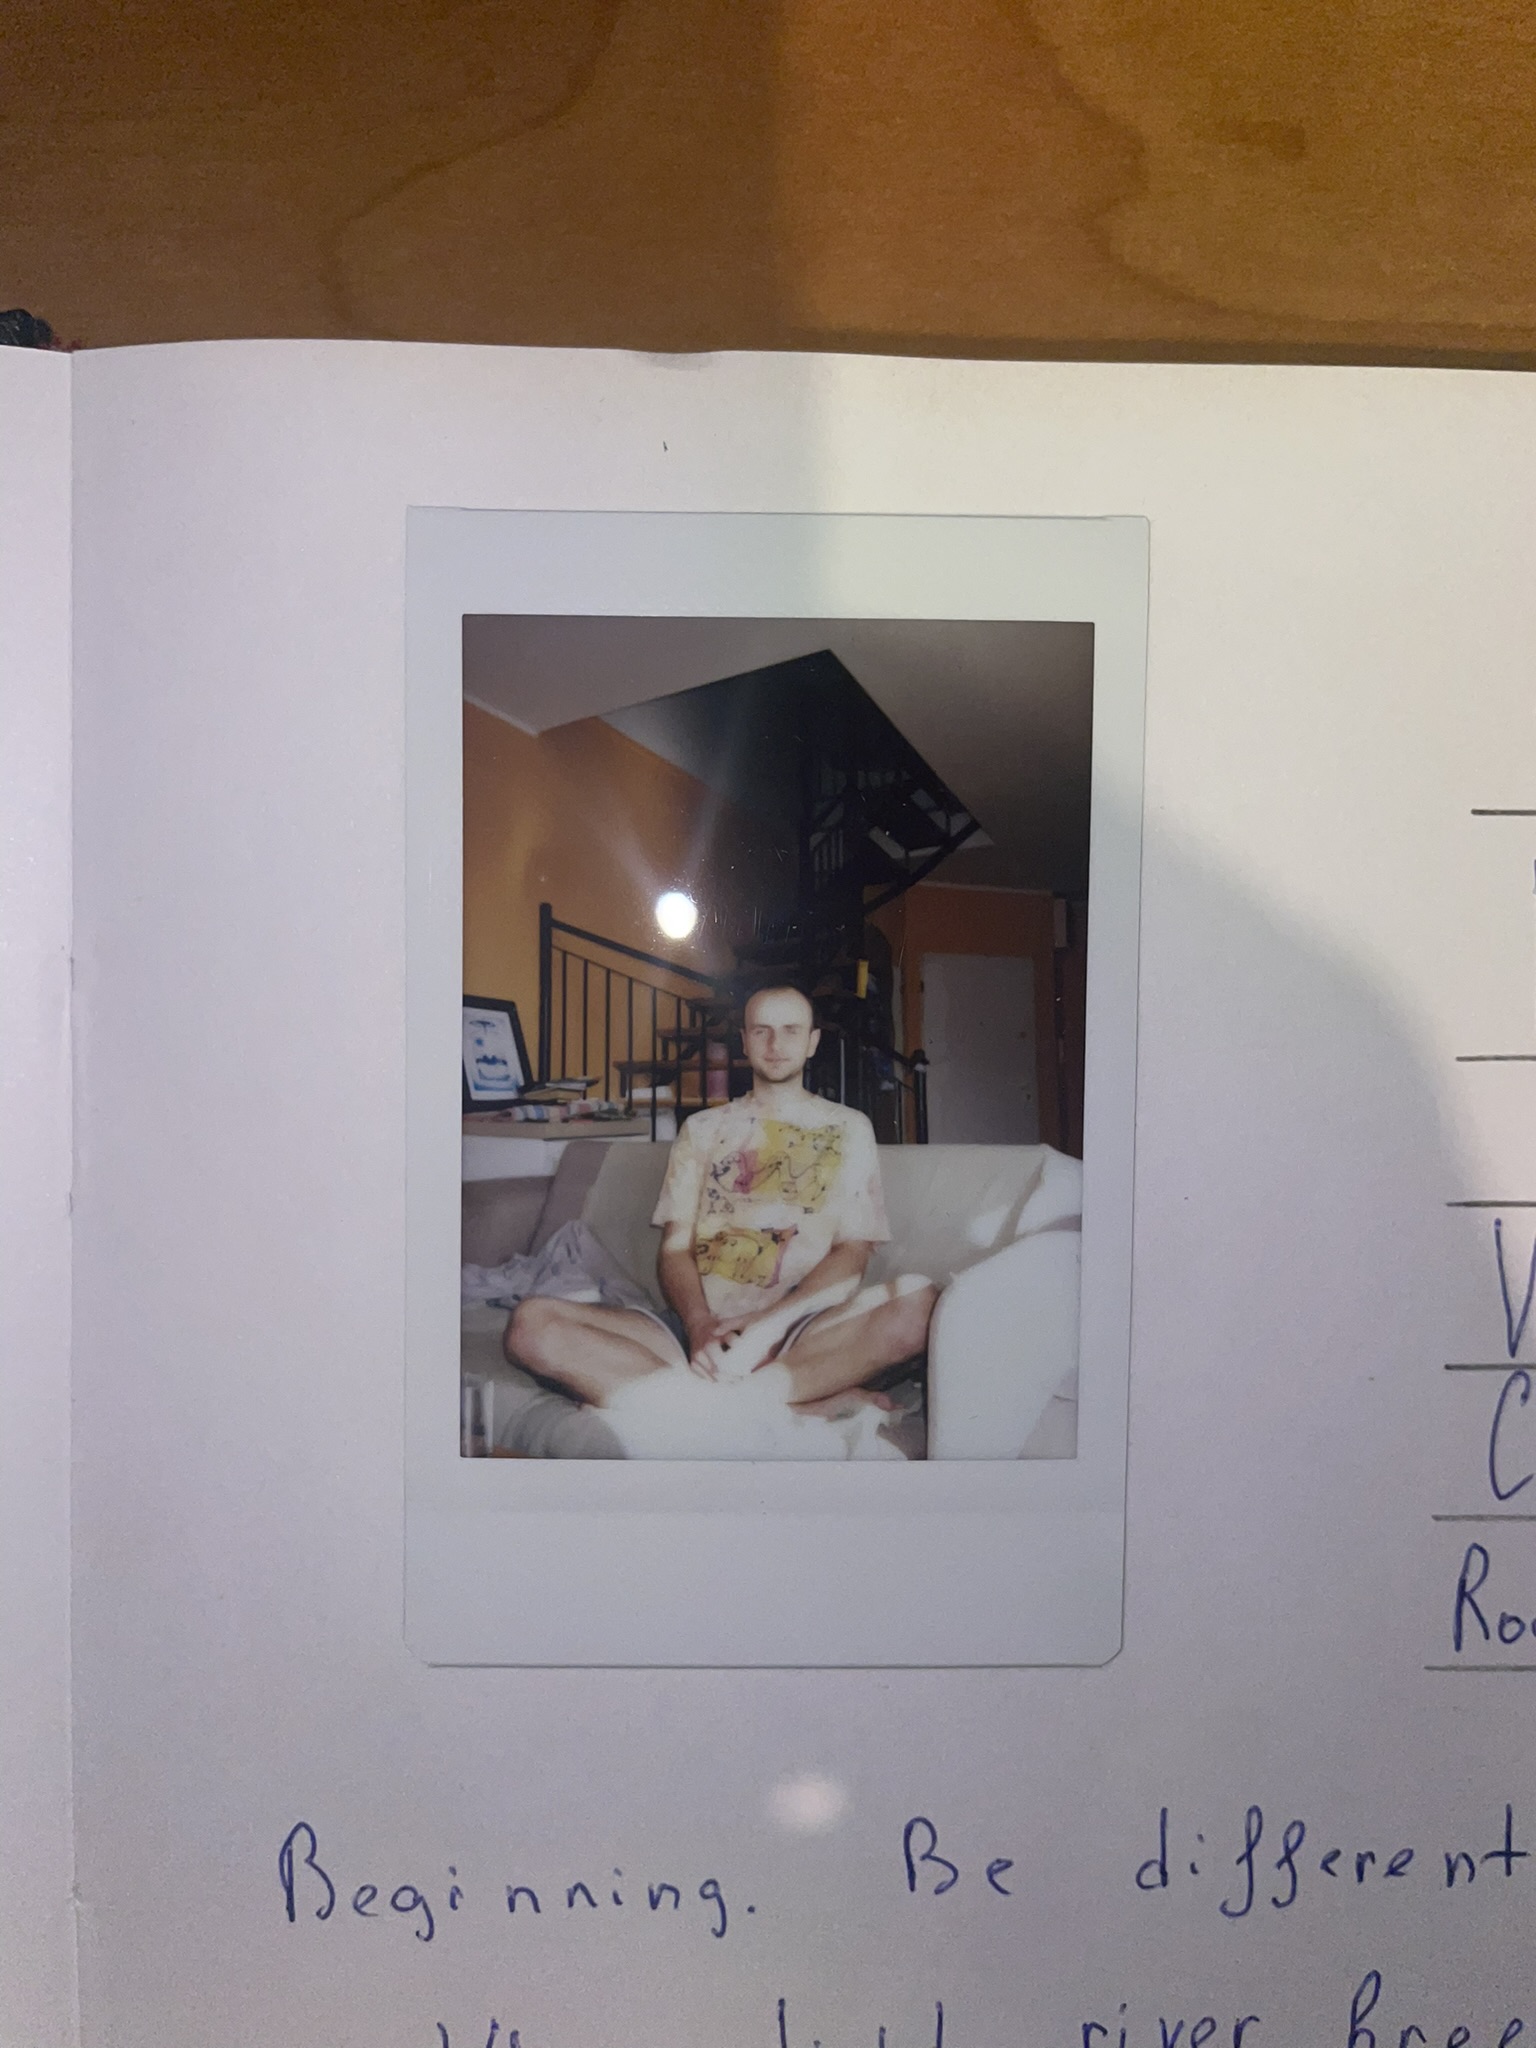 V
C
Ro
Beginning. Be different
river